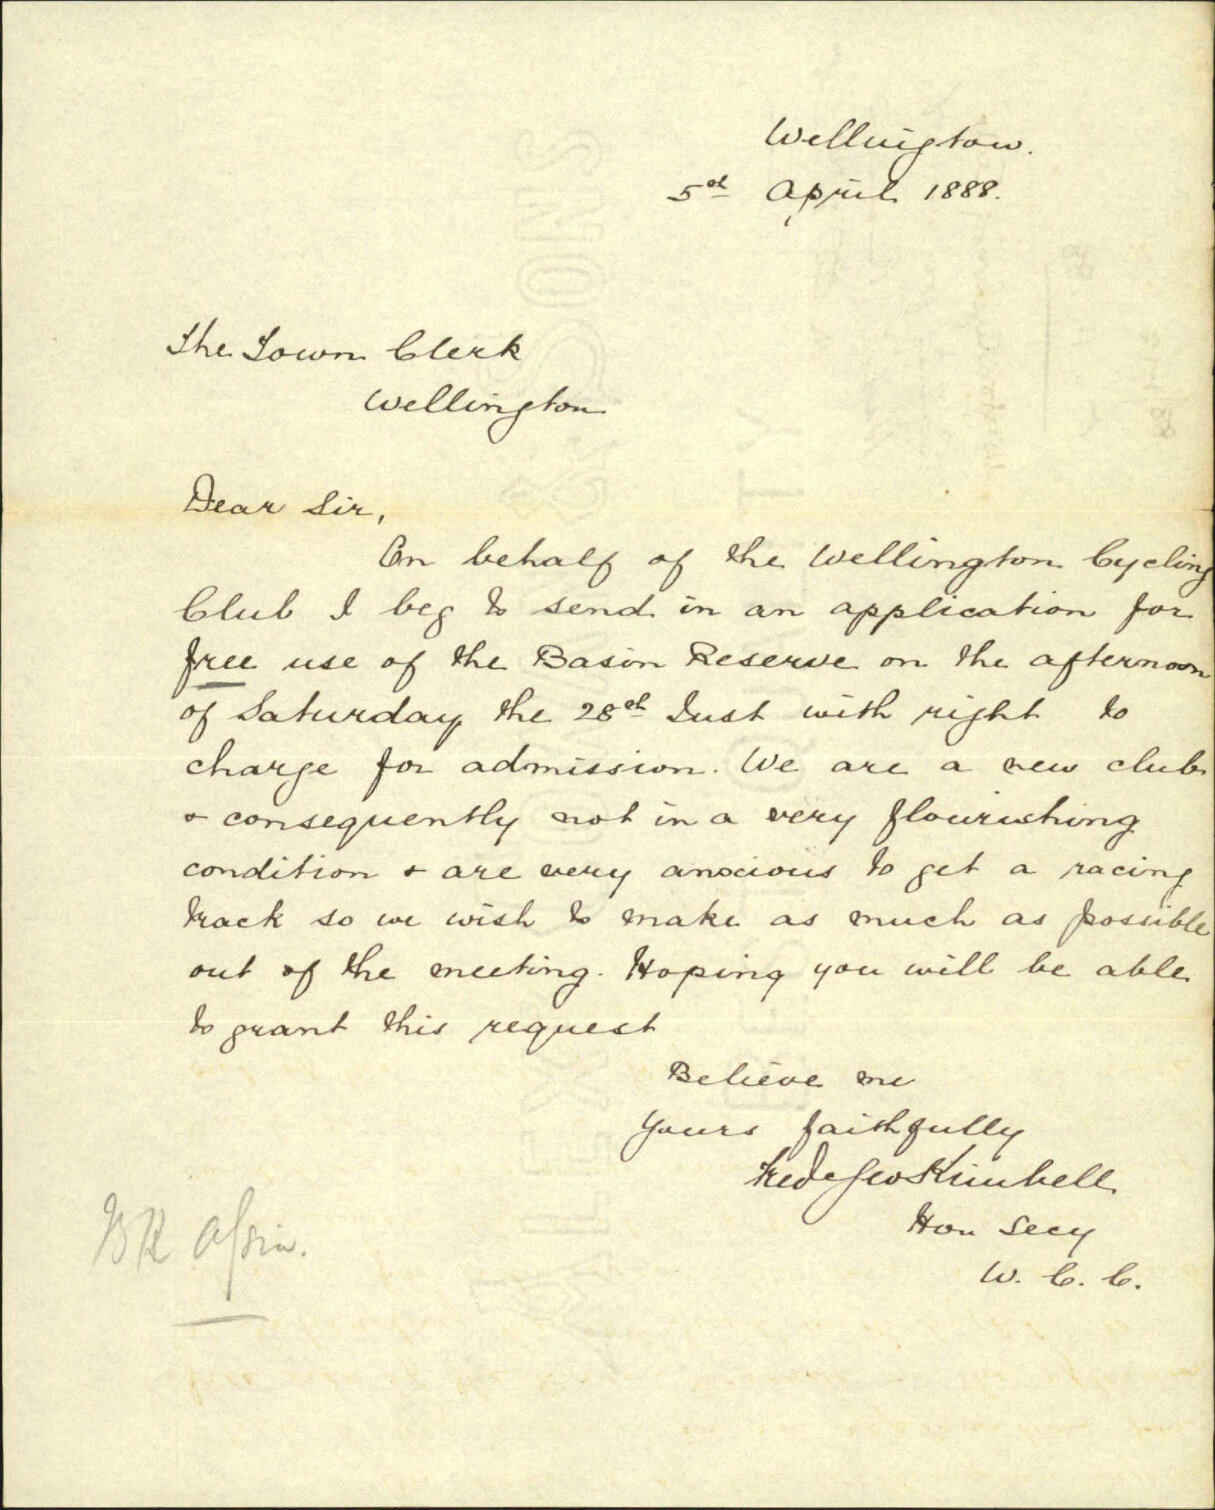 Wellington.
5th April 1888.
The Town Clerk
Wellington
Dear Sir,
On behalf of the Wellington Cycling
Club I beg to send in an application for
free use of the Basin Reserve on the afternoon
of Saturday the 28th Inst with right to
charge for admission. We are a new club
& consequently not in a very flourishing
condition & are very anxious to get a racing
track so we wish to make as much as possible
out of the meeting. Hoping you will be able
to grant this request
Believe me
Yours faithfully
Fredc Geo Kimbell
Hon Secy
W. C. C.